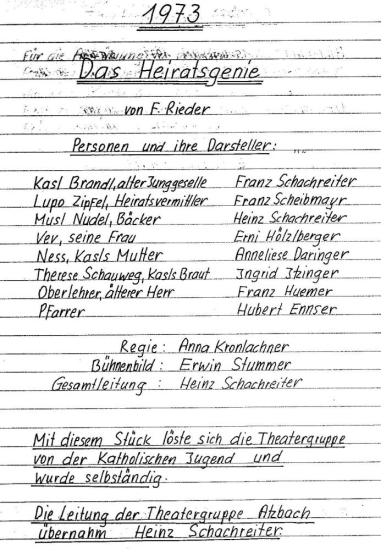 1973
Für die
Das Heiratsgenie
von F. Rieder
Personen und ihre Darsteller:
Kasl Brandl, alter Junggeselle Franz Schachreiter
Lupo Zipfel, Heiratsvermittler Franz Scheibmayr
Musl Nudel, Bäcker Heinz Schachreiter
Vev, seine Frau Erni Hölzlberger
Ness, Kasls Mutter Anneliese Daringer
Therese Schauweg, Kasls Braut Ingrid Itzinger
Oberlehrer, älterer Herr Franz Huemer
Pfarrer Hubert Ennser
Regie: Anna Kronlachner
Bühnenbild: Erwin Stummer
Gesamtleitung: Heinz Schachreiter
Mit diesem Stück löste sich die Theatergruppe
von der Katholischen Jugend und
wurde selbständig.
Die Leitung der Theatergruppe Atzbach
übernahm Heinz Schachreiter.